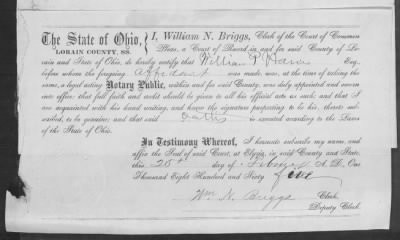 The State of Ohio,
LORAIN COUNTY, SS.
I, William N. Briggs, Clerk of the Court of Common
Pleas, a Court of Record in and for said County of Lo-
rain and State of Ohio, do hereby certify that William P. Esq.
before whom the foregoing affidavit was made, was, at the time of taking the
same, a legal acting Notary Public, within and for said County, was duly appointed and sworn
into office that full faith and credit should be given to all his official acts as such; and that I
am acquainted with his hand writing, and know the signature purporting to be his, thereto sub-
scribed, to be genuine; and that said is executed according to the Laws
of the State of Ohio.
In Testimony Whereof, I hereunto subscribe my name, and
affix the Seal of said Court, at Elyria, in said County and State,
this 28th day of February A. D., One
Thousand Eight Hundred and Sixty five
Wm N. Briggs Clerk.
Deputy Clerk.